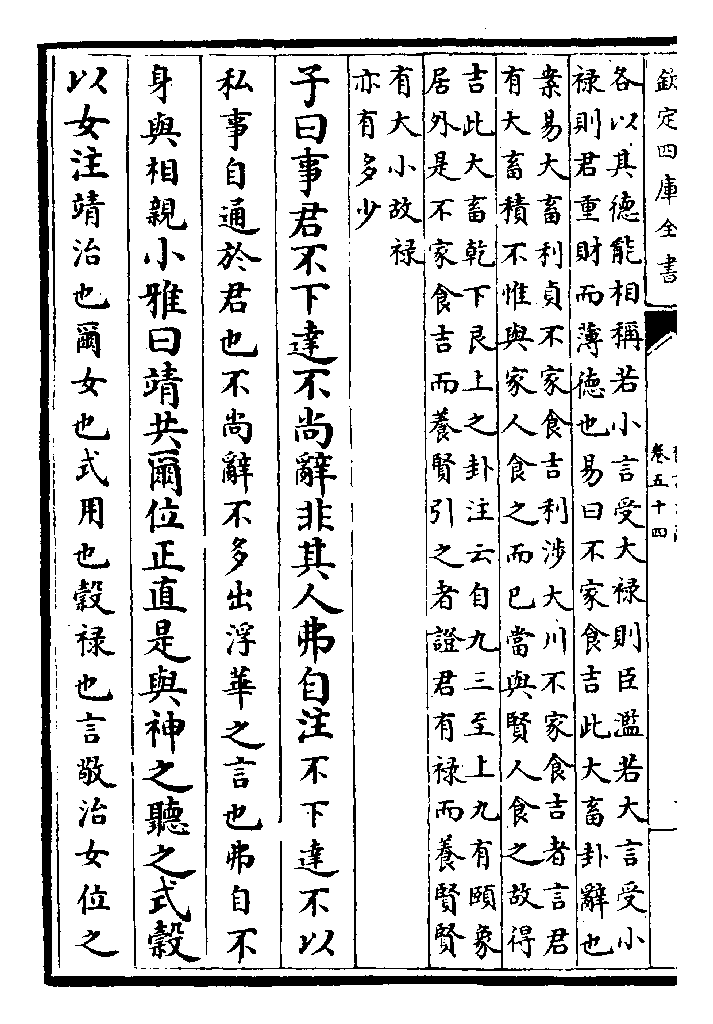 欽定四庫全書
卷五十四
各以其德能相稱若小言受大禄則臣濫若大言受小
禄則君重財而薄德也易曰不家食吉此大畜卦辭也
案易大畜利貞不家食吉利涉大川不家食吉者言君
有大畜積不惟與家人食之而已當與賢人食之故得
吉此大畜乾下艮上之卦注云自九三至上九有頤象
居外是不家食吉而養賢引之者證君有禄而養賢賢
有大小故禄
亦有多少
子曰事君不下達不尚辭非其人弗自注不下達不以
私事自通於君也不尚辭不多出浮華之言也弗自不
身與相親小雅曰靖共爾位正直是與神之聽之式穀
以女注靖治也爾女也式用也穀禄也言敬治女位之